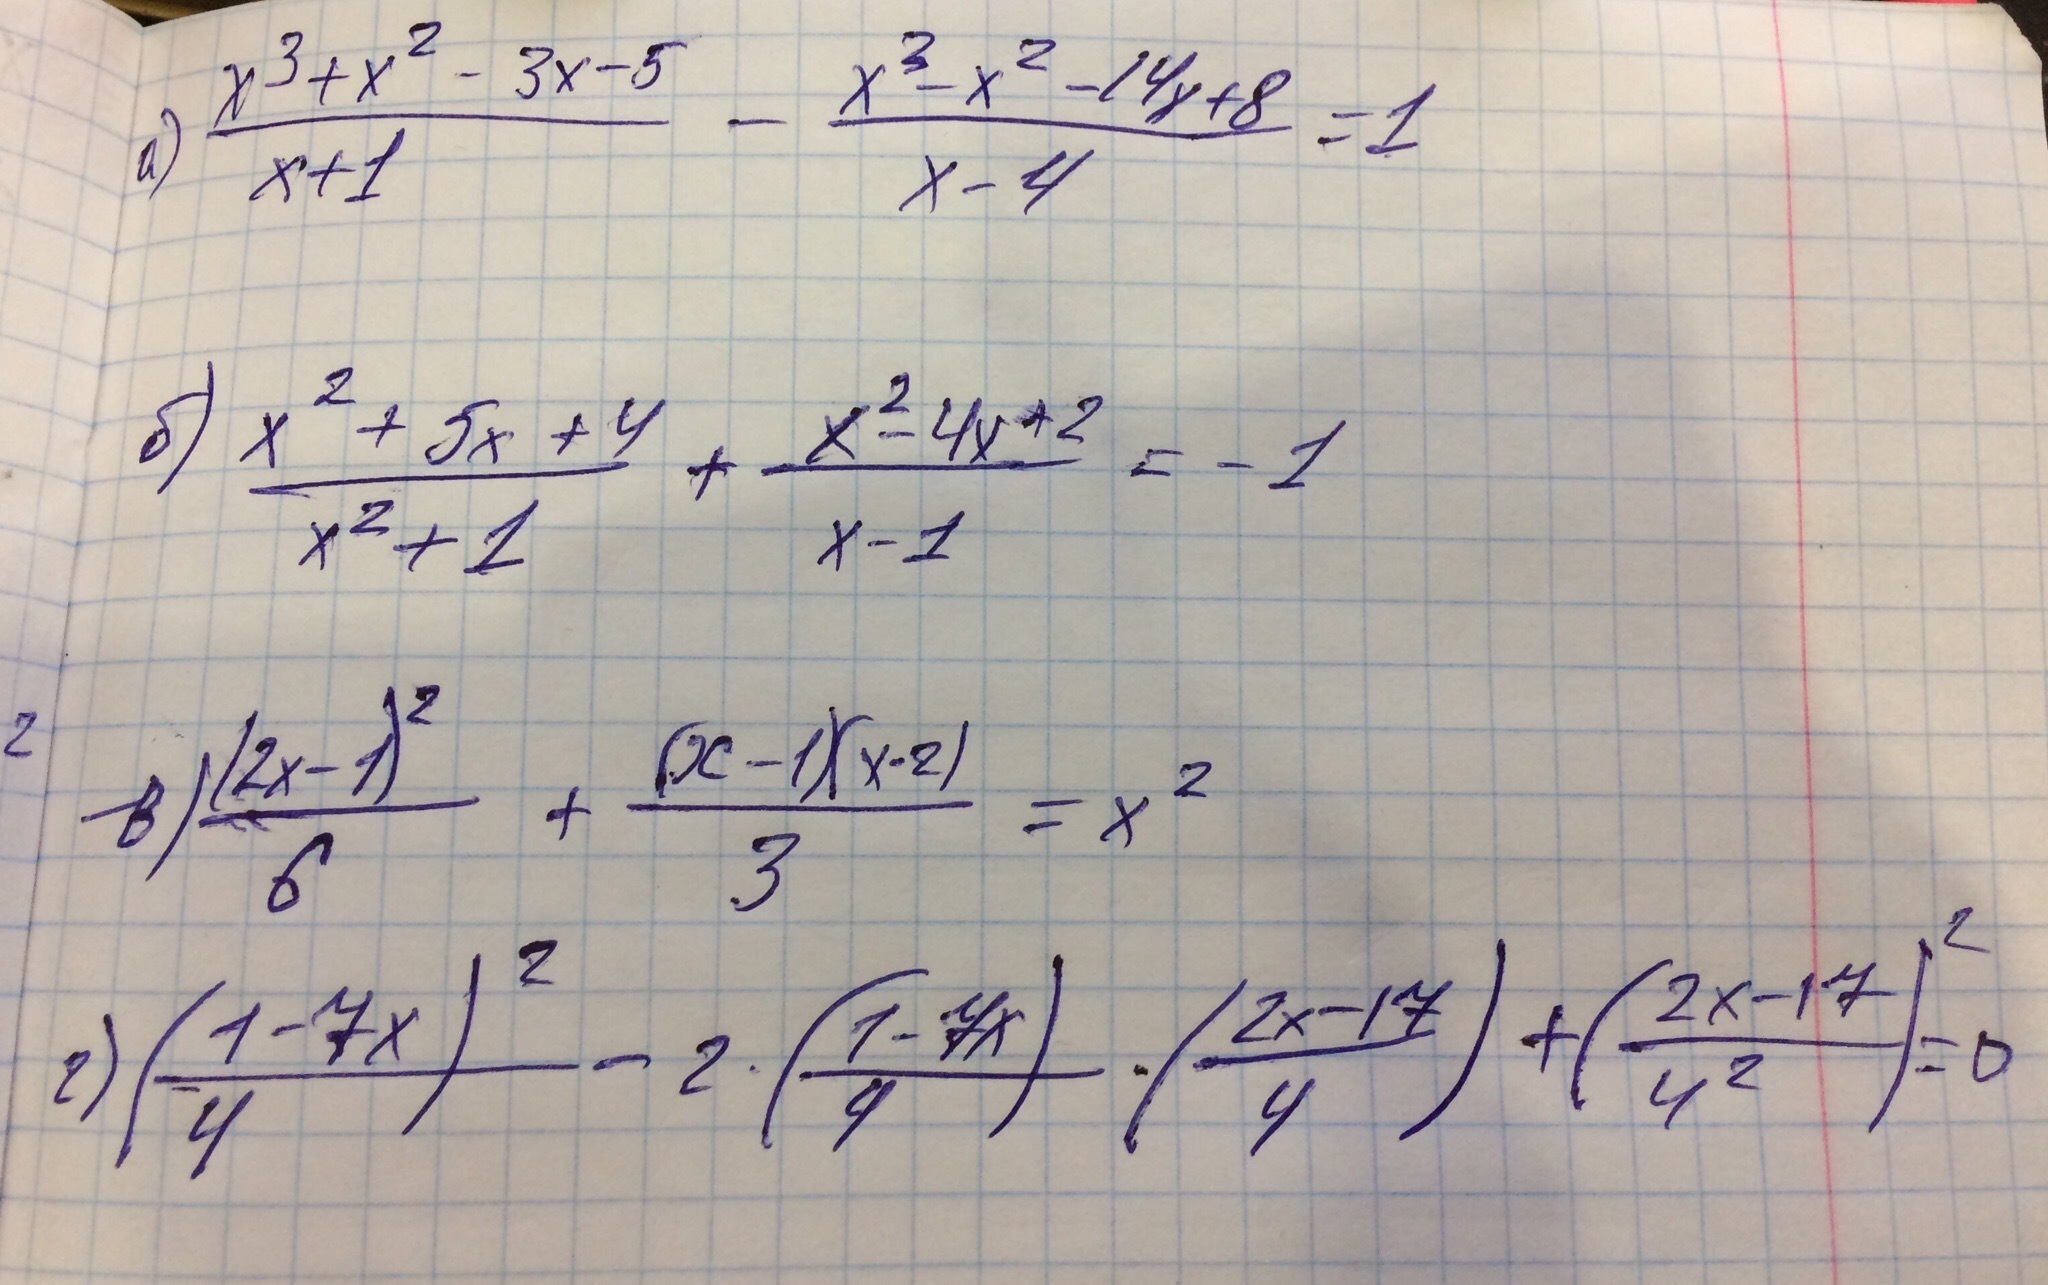 а) (x³+x²-3x-5)/(x+1) - (x³-x²-14x+8)/(x-4) = 1
б) (x²+5x+4)/(x²+1) + (x²-4x+2)/(x-1) = -1
2
в) (2x-1)²/6 + (x-1)(x-2)/3 = x²
г) ((1-7x)/4)² - 2·((1-7x)/4)·((2x-17)/4) + ((2x-17)/4²)² = 0